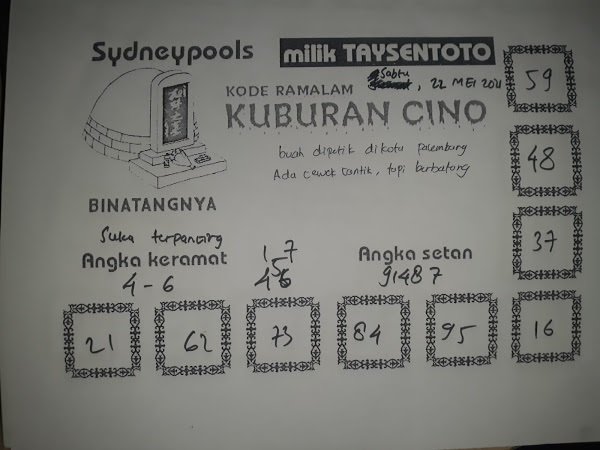 Sydneypools
milik TAYSENTOTO
59
KODE RAMALAM
Sabtu, 22 MEI 2021
KUBURAN CINO
buah dipetik dikota palembang
Ada cewek cantik, tapi berbatang
48
BINATANGNYA
Suka terpancing
37
Angka keramat
4-6
1 7
5
46
Angka setan
91487
21
62
73
84
95
16